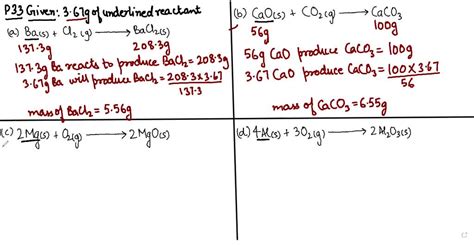 P33 Given: 3.67g of underlined reactant
(a) Ba(s) + Cl₂(g) → BaCl₂(s)
137.3g 208.3g
137.3g Ba reacts to produce BaCl₂ = 208.3g
3.67g Ba will produce BaCl₂ = 208.3 × 3.67
137.3
mass of BaCl₂ = 5.56g
(b) CaO(s) + CO₂(g) → CaCO₃
56g 100g
56g CaO produce CaCO₃ = 100g
3.67 CaO produce CaCO₃ = 100 × 3.67
56
mass of CaCO₃ = 6.55g
(c) 2Mg(s) + O₂(g) → 2MgO(s)
(d) 4Al(s) + 3O₂(g) → 2Al₂O₃(s)